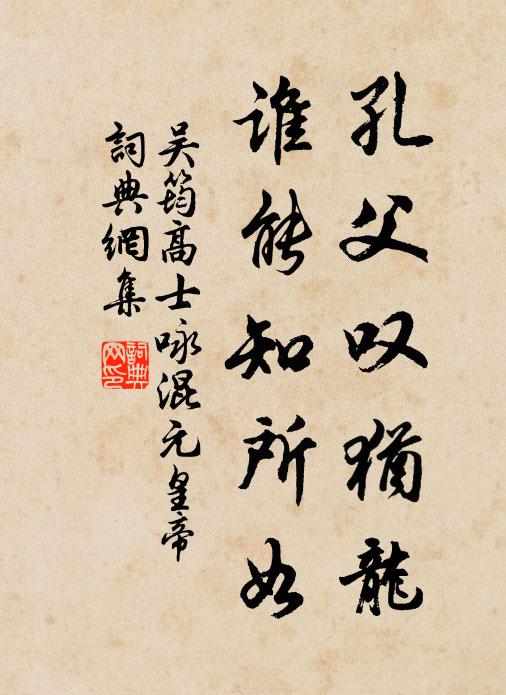 孔父叹猶龍
誰能知所如
吴筠高士咏混元皇帝
詞典網集
詞典網印